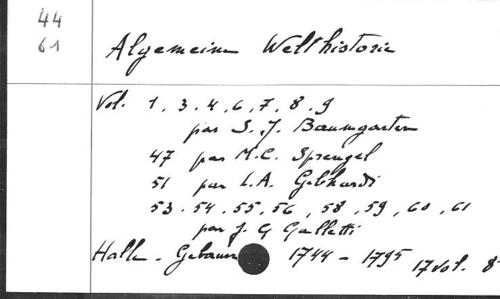 44
61
Algemeine Welthistorie
Vol. 1, 3, 4, 6, 7, 8, 9
par S. J. Baumgarten
47 par M.C. Sprengel
51 par L.A. Gebhardi
53. 54. 55, 56, 58, 59, 60, 61
par J. G Galletti
Halle. Gebauer 1744 - 1795 17 vol. 8°